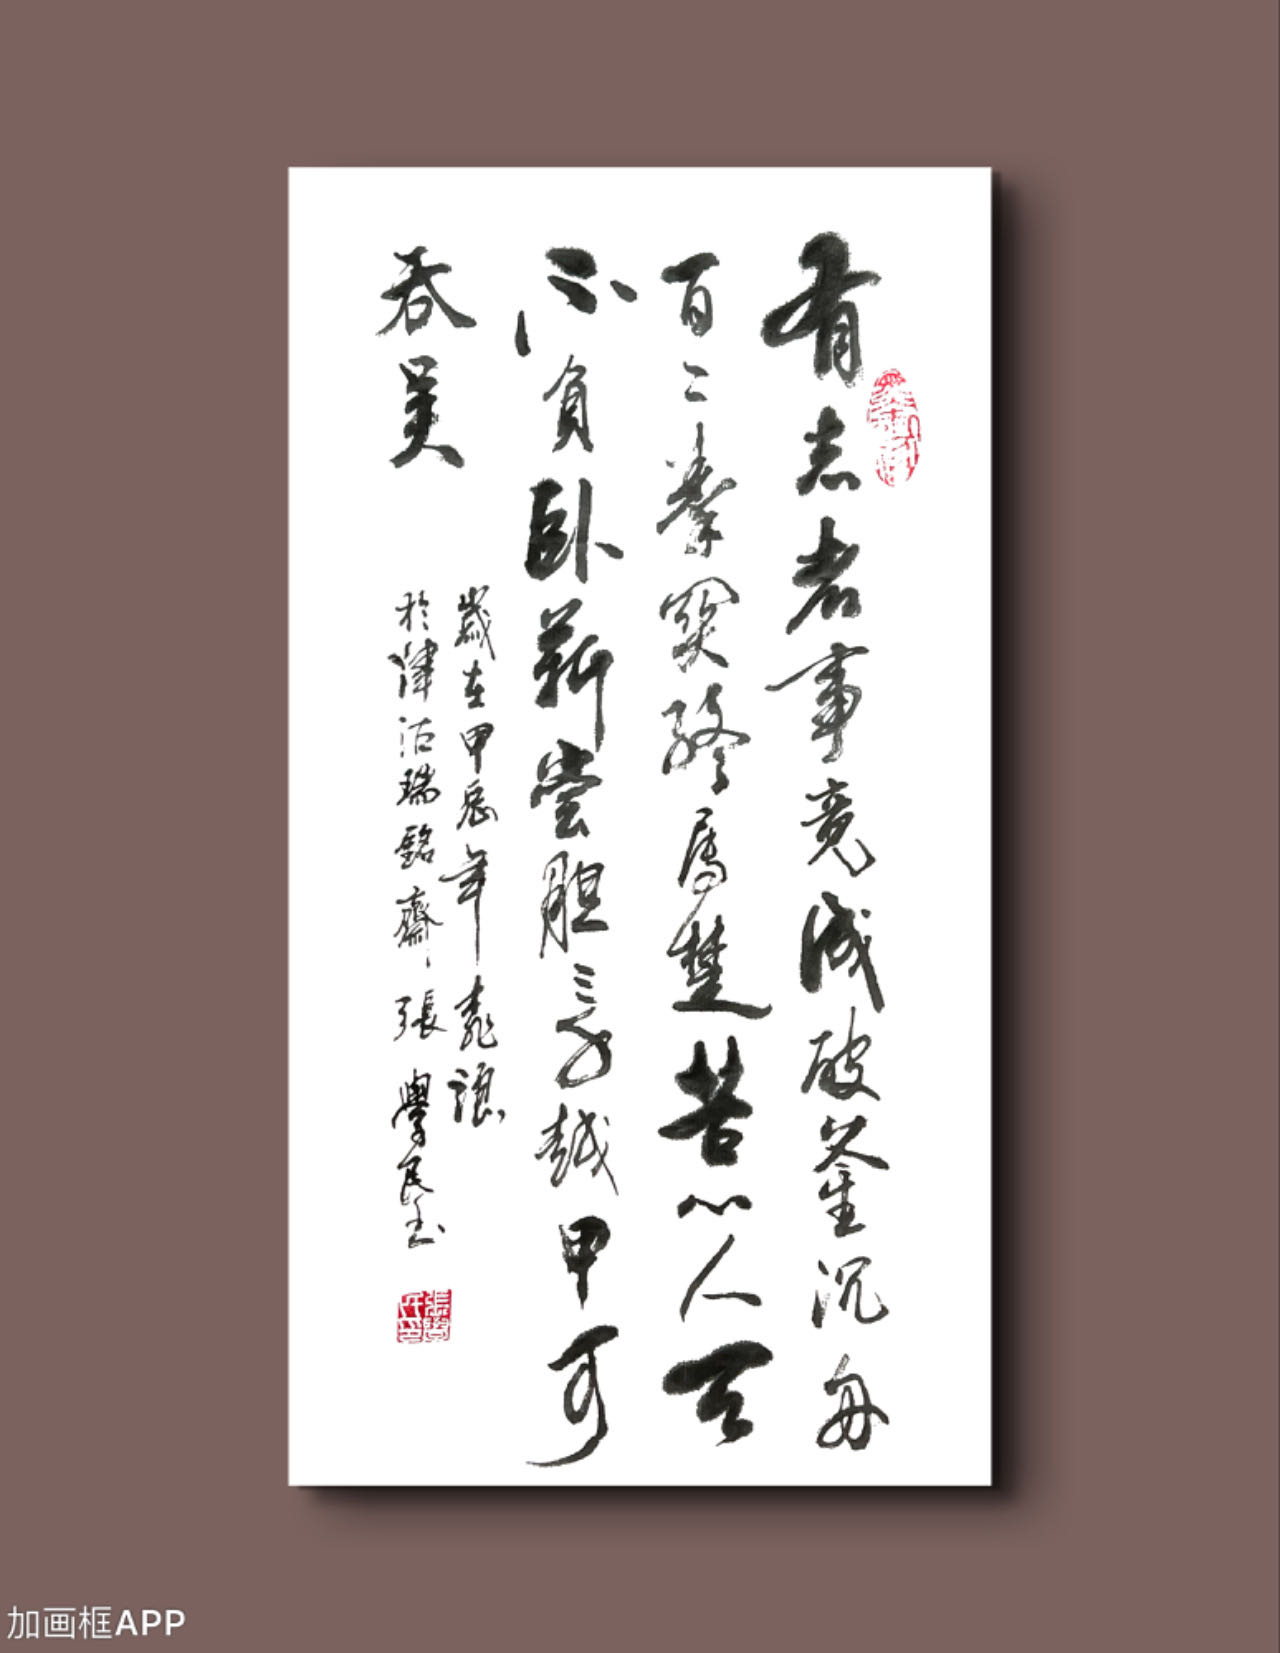 有志者事竟成破釜沉舟
百二秦关终属楚苦心人天
不负卧薪尝胆三千越甲可
吞吴
歲在甲辰年
於津沽瑞銘齋張學民書
加画框APP